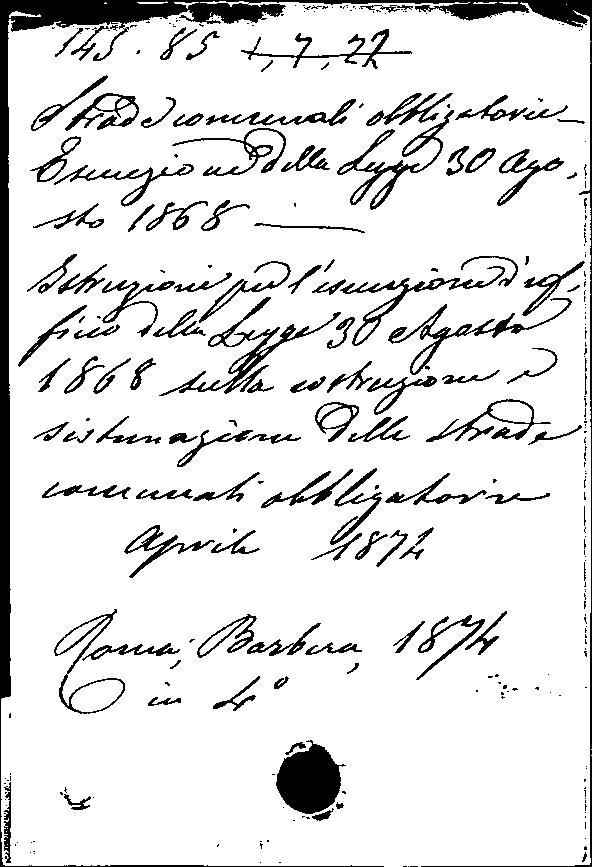 145.85 1,7,22
Strade comunali obbligatorie_
Esecuzione della Legge 30 Ago-
sto 1868 —
Istruzioni per l'esecuzione d'uf-
ficio della Legge 30 Agosto
1868 sulla costruzione e
sistemazione delle strade
comunali obbligatorie
Aprile 1874
Roma, Barbera, 1874
in 4°